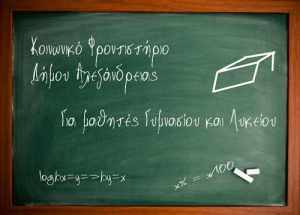 Κοινωνικό Φροντιστήριο
Δήμου Αλεξάνδρειας
Για μαθητές Γυμνασίου και Λυκείου
logbx=y=>by=x
x% = x/100